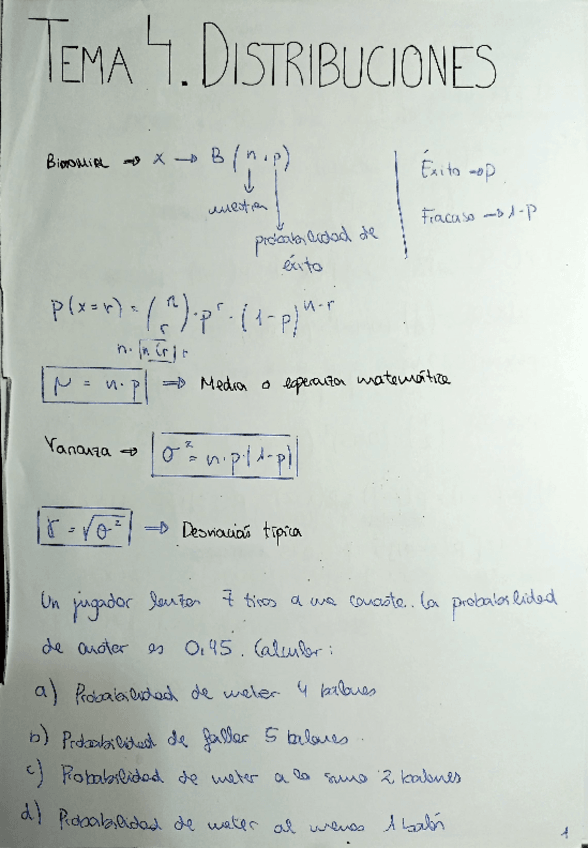 TEMA 4. DISTRIBUCIONES
Binomial → X → B(n,p)
muestra
probabilidad de
éxito
Éxito → p
Fracaso → 1-p
p(x=r) = (n r) · p^r · (1-p)^n-r
μ = n·p ⇒ Media o esperanza matemática
Varianza → σ² = n·p·(1-p)
σ = √σ² ⇒ Desviación típica
Un jugador lanza 7 tiros a una canasta. La probabilidad
de anotar es 0,45. Calcular:
a) Probabilidad de meter 4 balones
b) Probabilidad de fallar 5 balones.
c) Probabilidad de meter a lo sumo 2 balones
d) Probabilidad de meter al menos 1 balón
1